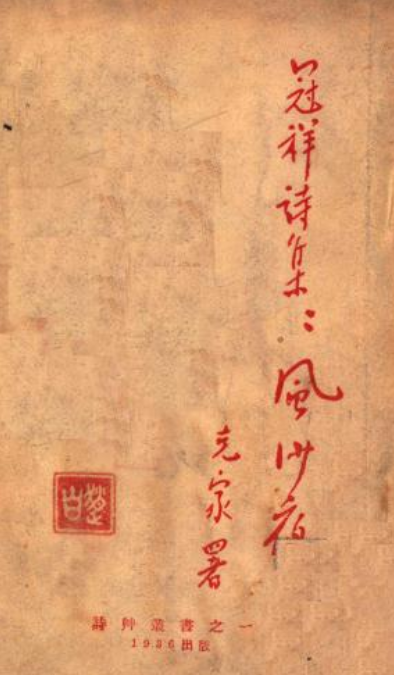 冠祥詩集：風沙夜
克家署
詩艸叢書之一
1936出版